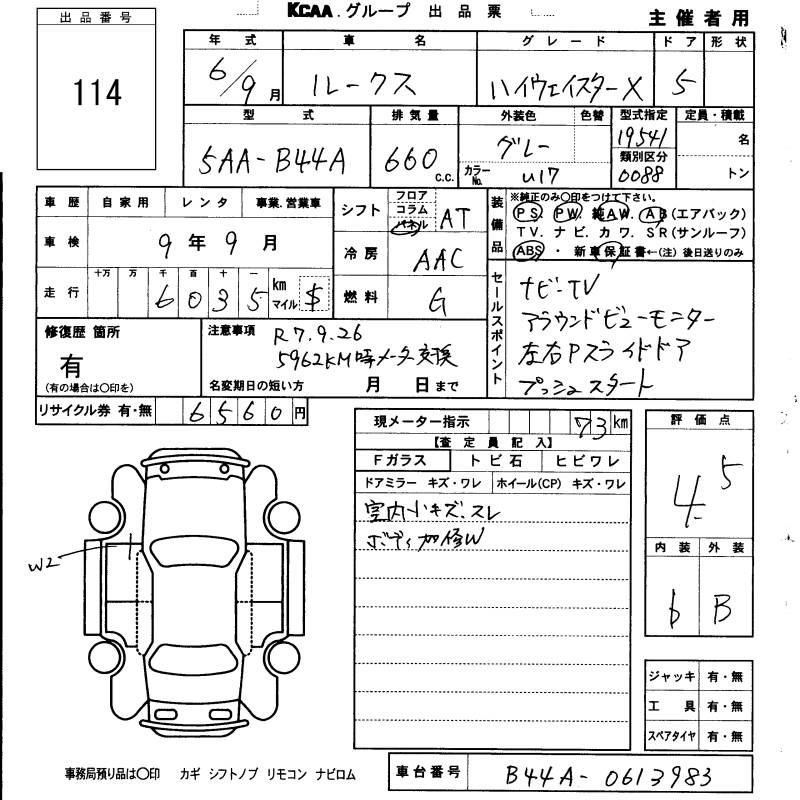 KCAA グループ 出品票
主催者用
出品番号
114
年式 車名 グレード ドア 形状
6/9月 ルークス ハイウェイスターX 5
型式 排気量 外装色 色替 型式指定 定員・積載
5AA-B44A 660 c.c. グレー カラーNo. U17 19541 類別区分 0088 名 トン
車歴 自家用 レンタ 事業.営業車
車検 9年9月
走行 十万 万 千 百 十 一 km マイル $
6035
シフト フロア コラム パネル AT
冷房 AAC
燃料 G
装備品 ※純正のみ〇印をつけて下さい。
PS. PW. 純AW. AB(エアバック)
TV. ナビ. カワ. SR(サンルーフ)
ABS ・ 新車保証書←(注)後日送りのみ
セールスポイント
ナビ-TV
アラウンドビューモニター
左右Pスライドドア
プッシュスタート
修復歴 箇所
有
(有の場合は〇印を)
注意事項 R7.9.26
5962KM時メータ交換
名変期日の短い方 月 日まで
リサイクル券 有・無 6560円
現メーター指示 73km
【査定員記入】
Fガラス トビ石 ヒビワレ
ドアミラー キズ・ワレ ホイール(CP) キズ・ワレ
室内小キズ.スレ
ボディ加修W
W2
評価点
4.5
内装 外装
b B
ジャッキ 有・無
工具 有・無
スペアタイヤ 有・無
事務局預り品は〇印 カギ シフトノブ リモコン ナビロム
車台番号 B44A-0613983